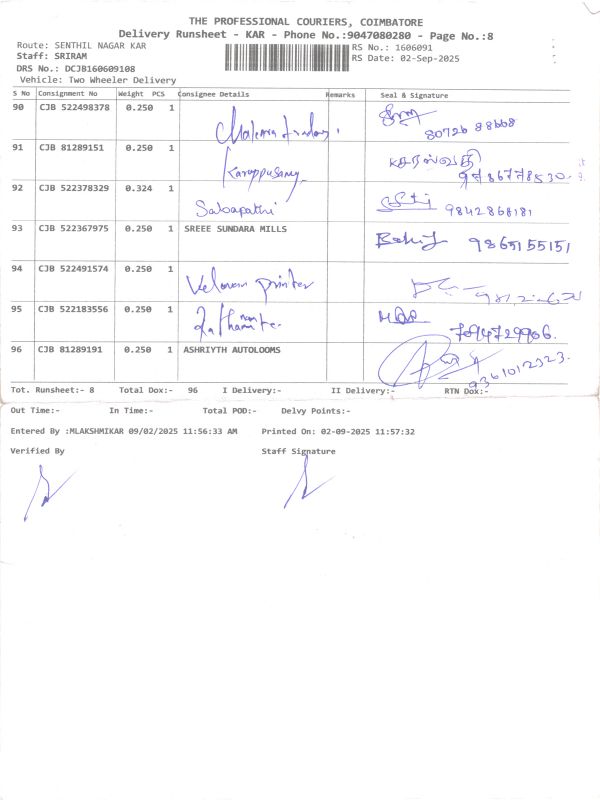 THE PROFESSIONAL COURIERS, COIMBATORE
Delivery Runsheet - KAR - Phone No.:9047080280 - Page No.:8
Route: SENTHIL NAGAR KAR RS No.: 1606091
Staff: SRIRAM RS Date: 02-Sep-2025
DRS No.: DCJB160609108
Vehicle: Two Wheeler Delivery
S No Consignment No Weight PCS Consignee Details Remarks Seal & Signature
90 CJB 522498378 0.250 1 80726 88668
91 CJB 81289151 0.250 1 Karuppusamy சரஸ்வதி
92 CJB 522378329 0.324 1 Sabapathi 9842868181
93 CJB 522367975 0.250 1 SREEE SUNDARA MILLS 9865155151
94 CJB 522491574 0.250 1 printer
95 CJB 522183556 0.250 1 7094729906.
96 CJB 81289191 0.250 1 ASHRIYTH AUTOLOOMS 9361012323.
Tot. Runsheet:- 8 Total Dox:- 96 I Delivery:- II Delivery:- RTN Dox:-
Out Time:- In Time:- Total POD:- Delvy Points:-
Entered By :MLAKSHMIKAR 09/02/2025 11:56:33 AM Printed On: 02-09-2025 11:57:32
Verified By Staff Signature